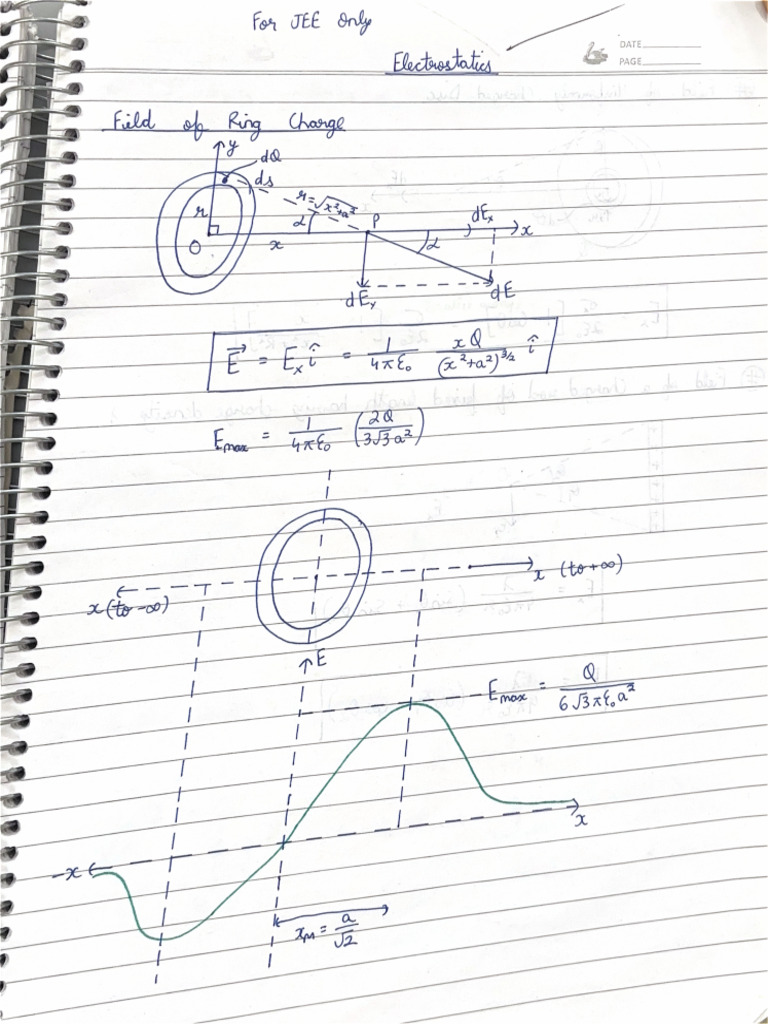 For JEE Only
DATE
PAGE
Electrostatics
Field of Ring Charge
y
dQ
ds
r = √x²+a²
r
α
P
dEₓ
x
O
x
α
dEᵧ
dE
E⃗ = Eₓ î = 1/4πε₀ xQ/(x²+a²)^3/2 î
Emax = 1/4πε₀ (2Q/3√3a²)
x (to +∞)
x (to -∞)
E
Emax = Q/6√3πε₀a²
x
-x
xM = a/√2